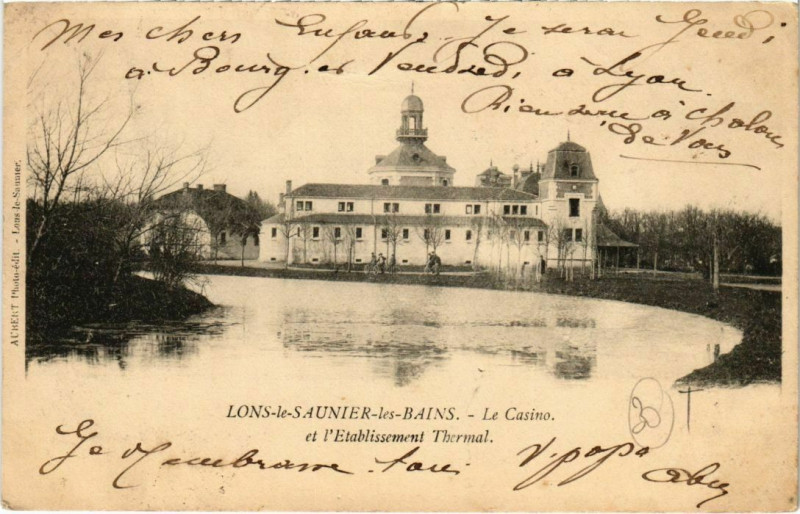 Mes chers Enfants, Je serai Jeudi,
à Bourg. et Vendredi, à Lyon.
Rien à chalon
De Vous
AUBERT Photo-édit. - Lons-le-Saunier.
LONS-le-SAUNIER-les-BAINS. - Le Casino.
et l'Etablissement Thermal.
30
Je tous
V. papa